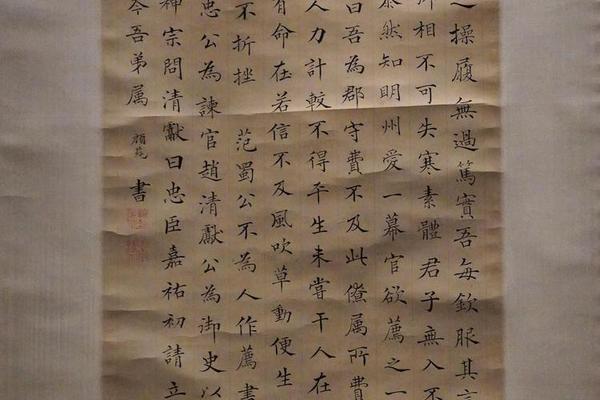 操履無過篤實吾每欽服其言
相不可失寒素體君子無入不
然知明州愛一幕官欲薦之一
曰吾為郡守費不及此僚屬所費
人力計較不得平生未嘗干人在
有命在若信不及風吹草動便生
不折挫 范蜀公不為人作薦書
忠公為諫官趙清獻公為御史以
神宗問清獻曰忠臣嘉祐初請立
岑吾弟属 書